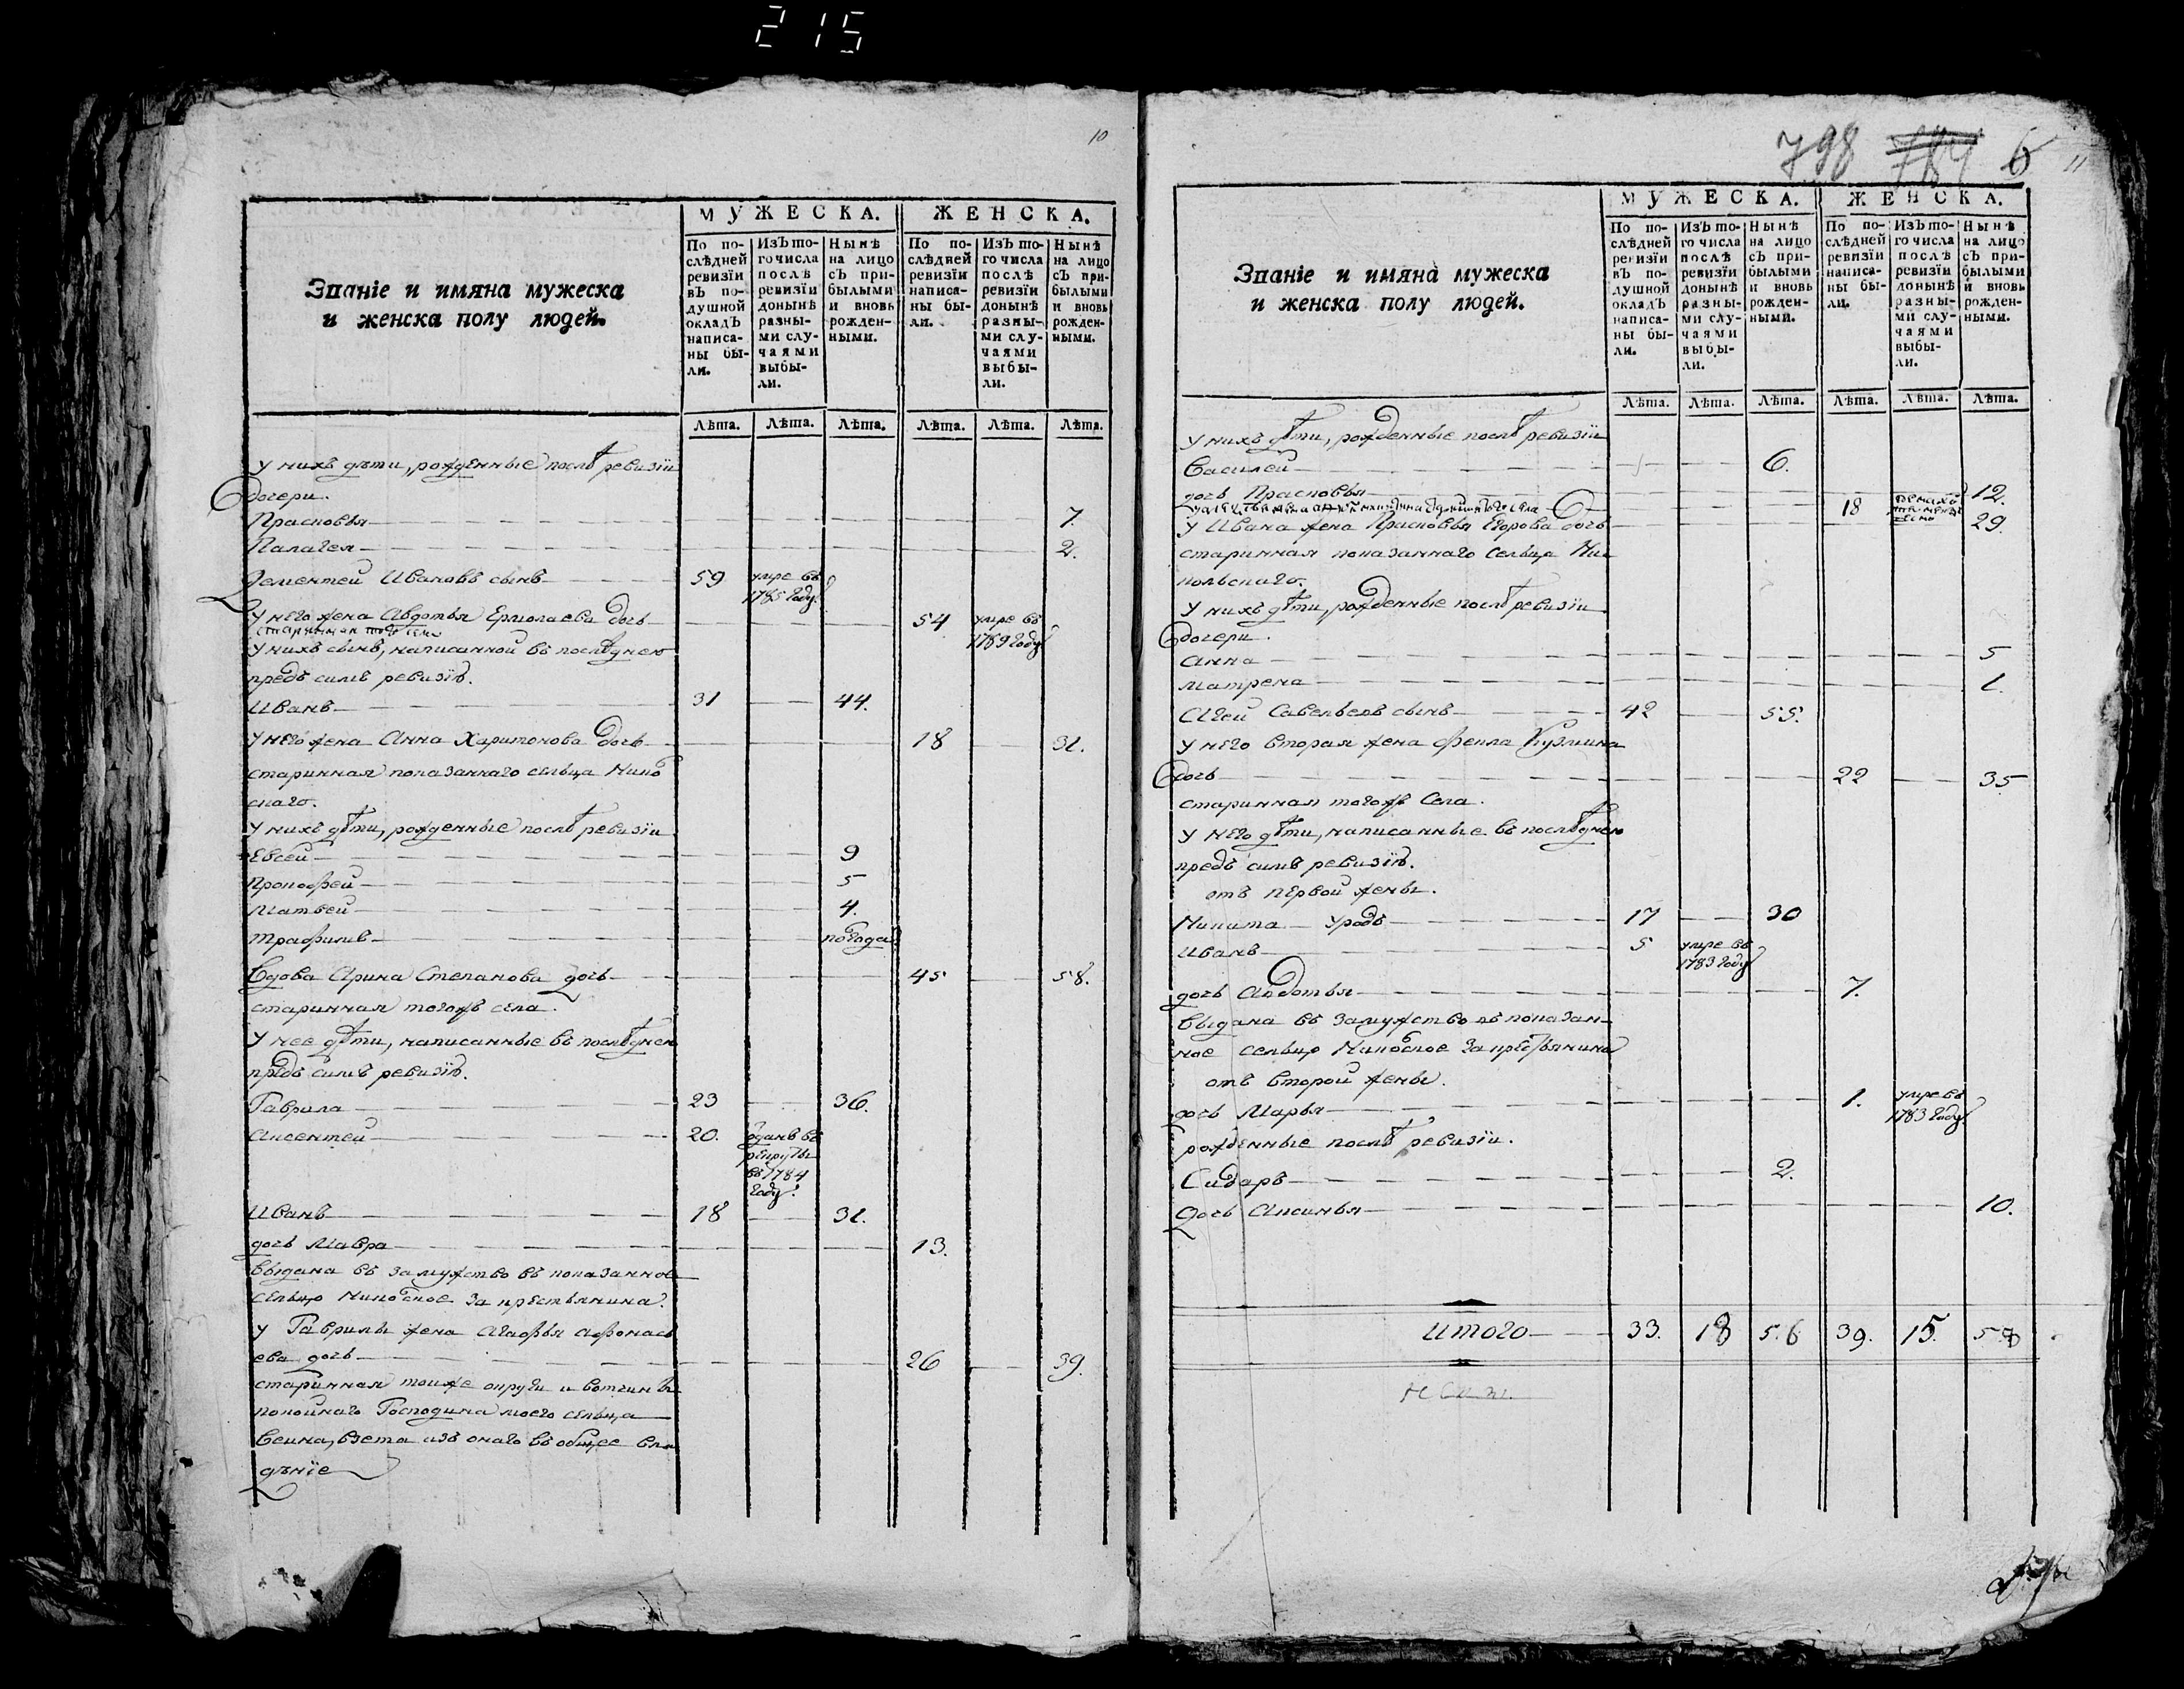 215
10
Званіе и имяна мужеска
и женска полу людей.
МУЖЕСКА.
ЖЕНСКА.
По по-
слѣдней
ревизіи
въ по-
душной
окладъ
написа-
ны бы-
ли.
Изъ то-
го числа
послѣ
ревизіи
донынѣ
разны-
ми слу-
чаями
выбы-
ли.
Нынѣ
на лицо
съ при-
былыми
и вновь
рожден-
ными.
По по-
слѣдней
ревизіи
написа-
ны бы-
ли.
Изъ то-
го числа
послѣ
ревизіи
донынѣ
разны-
ми слу-
чаями
выбы-
ли.
Нынѣ
на лицо
съ при-
былыми
и вновь
рожден-
ными.
Лѣта. Лѣта. Лѣта. Лѣта. Лѣта. Лѣта.
у нихъ дѣти, рожденные послѣ ревизіи
дочери.
Прасковья 7.
Палагея 2.
Дементей Ивановъ сынъ 59 умре въ
1785 году.
у него жена Авдотья Ермолаева дочь 54 умре въ
1789 году
старинная того села
у нихъ сынъ, написанной въ последнею
предъ симъ ревизію.
Иванъ 31 44.
у него жена Анна Харитонова дочь 18 31.
старинная показаннаго сельца Николь
скаго.
у нихъ дѣти, рожденные послѣ ревизіи
Евсей 9
Прокофей 5
Матвей 4.
Трафимъ погода
Вдова Арина Степанова дочь 45 58.
старинная тогожъ села.
у нее дѣти, написанные въ последнею
предъ симъ ревизію.
Гаврила 23 36.
Аксентей 20. отданъ въ
рекруты
въ 1784
году.
Иванъ 18 31.
дочь Мавра 13.
выдана въ замужство въ показанное
сельцо Никольское за крестьянина.
у Гаврилы жена Агафья Афонась
ева дочь 26 39.
старинная тоиже округи и вотчины
покойнаго Господина моего сельца
взета изъ онаго въ общее вла
дѣніе
798 784 6 11
Званіе и имяна мужеска
и женска полу людей.
МУЖЕСКА.
ЖЕНСКА.
По по-
слѣдней
ревизіи
въ по-
душной
окладъ
написа-
ны бы-
ли.
Изъ то-
го числа
послѣ
ревизіи
донынѣ
разны-
ми слу-
чаями
выбы-
ли.
Нынѣ
на лицо
съ при-
былыми
и вновь
рожден-
ными.
По по-
слѣдней
ревизіи
написа-
ны бы-
ли.
Изъ то-
го числа
послѣ
ревизіи
донынѣ
разны-
ми слу-
чаями
выбы-
ли.
Нынѣ
на лицо
съ при-
былыми
и вновь
рожден-
ными.
Лѣта. Лѣта. Лѣта. Лѣта. Лѣта. Лѣта.
у нихъ дѣти, рожденные послѣ ревизіи
Василей 6.
дочь Прасковья 12.
18
у Ивана жена Прасковья Егорова дочь 29.
старинная показаннаго сельца Ни-
кольскаго.
у нихъ дѣти, рожденные послѣ ревизіи
дочери.
Анна 5
Матрена 1.
Агей Савельевъ сынъ 42 55.
у него вторая жена Фекла Кузмина
дочь 22 35
старинная тогожъ села.
у него дѣти, написанные въ последнею
предъ симъ ревизію.
отъ первой жены.
Никита уродъ 17 30
Иванъ 5 умре въ
1783 году
дочь Авдотья 7.
выдана въ замужство въ показан-
ное сельцо Никольское за крестьянина
отъ второй жены.
дочь Марья 1. умре въ
1783 году.
рожденные послѣ ревизіи.
Сидаръ 2.
Дочь Аксинья 10.
Итого 33. 18 56 39. 15. 58